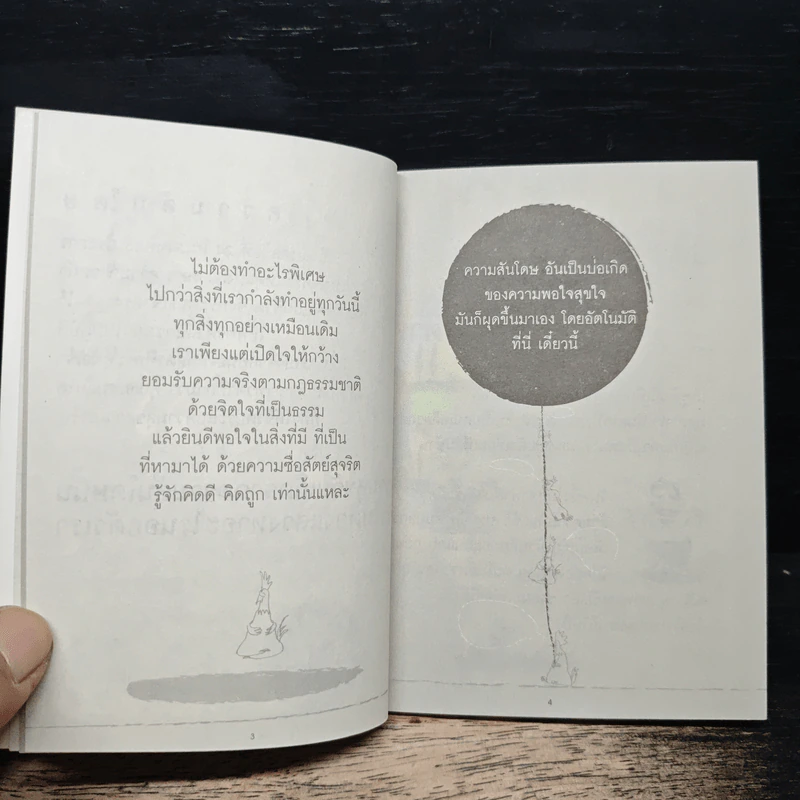 ไม่ต้องทำอะไรพิเศษ
ไปกว่าสิ่งที่เรากำลังทำอยู่ทุกวันนี้
ทุกสิ่งทุกอย่างเหมือนเดิม
เราเพียงแต่เปิดใจให้กว้าง
ยอมรับความจริงตามกฎธรรมชาติ
ด้วยจิตใจที่เป็นธรรม
แล้วยินดีพอใจในสิ่งที่มี ที่เป็น
ที่หามาได้ ด้วยความซื่อสัตย์สุจริต
รู้จักคิดดี คิดถูก เท่านั้นแหละ
3
ความสันโดษ อันเป็นบ่อเกิด
ของความพอใจสุขใจ
มันก็ผุดขึ้นมาเอง โดยอัตโนมัติ
ที่นี่ เดี๋ยวนี้
4